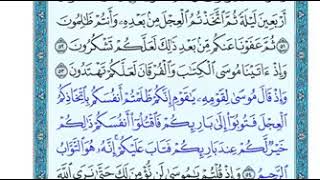 أَرْبَعِينَ لَيْلَةً ثُمَّ اتَّخَذْتُمُ الْعِجْلَ مِنْ بَعْدِهِ وَأَنْتُمْ ظَالِمُونَ
٥١ ثُمَّ عَفَوْنَا عَنْكُمْ مِنْ بَعْدِ ذَلِكَ لَعَلَّكُمْ تَشْكُرُونَ ٥٢
وَإِذْ ءَاتَيْنَا مُوسَى الْكِتَابَ وَالْفُرْقَانَ لَعَلَّكُمْ تَهْتَدُونَ ٥٣
وَإِذْ قَالَ مُوسَى لِقَوْمِهِ يَقَوْمِ إِنَّكُمْ ظَلَمْتُمْ أَنْفُسَكُمْ بِاتِّخَاذِكُمُ
الْعِجْلَ فَتُوبُوا إِلَى بَارِئِكُمْ فَاقْتُلُوا أَنْفُسَكُمْ ذَلِكُمْ
خَيْرٌ لَكُمْ عِنْدَ بَارِئِكُمْ فَتَابَ عَلَيْكُمْ إِنَّهُ هُوَ التَّوَّابُ
الرَّحِيمُ ٥٤ وَإِذْ قُلْتُمْ يَمُوسَى لَنْ نُؤْمِنَ لَكَ حَتَّى نَرَى اللَّهَ